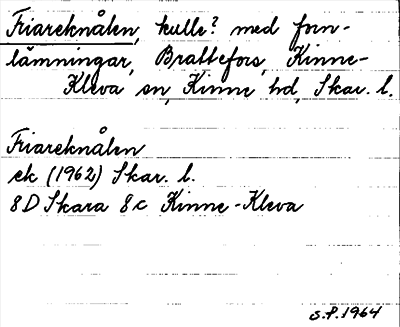 Friareknålen, kulle? med forn-
lämningar, Brattefors, Kinne-
Kleva sn, Kinne hd, Skar. l.
Friareknålen
ek (1962) Skar. l.
8D Skara 8c Kinne-Kleva
s.f. 1964